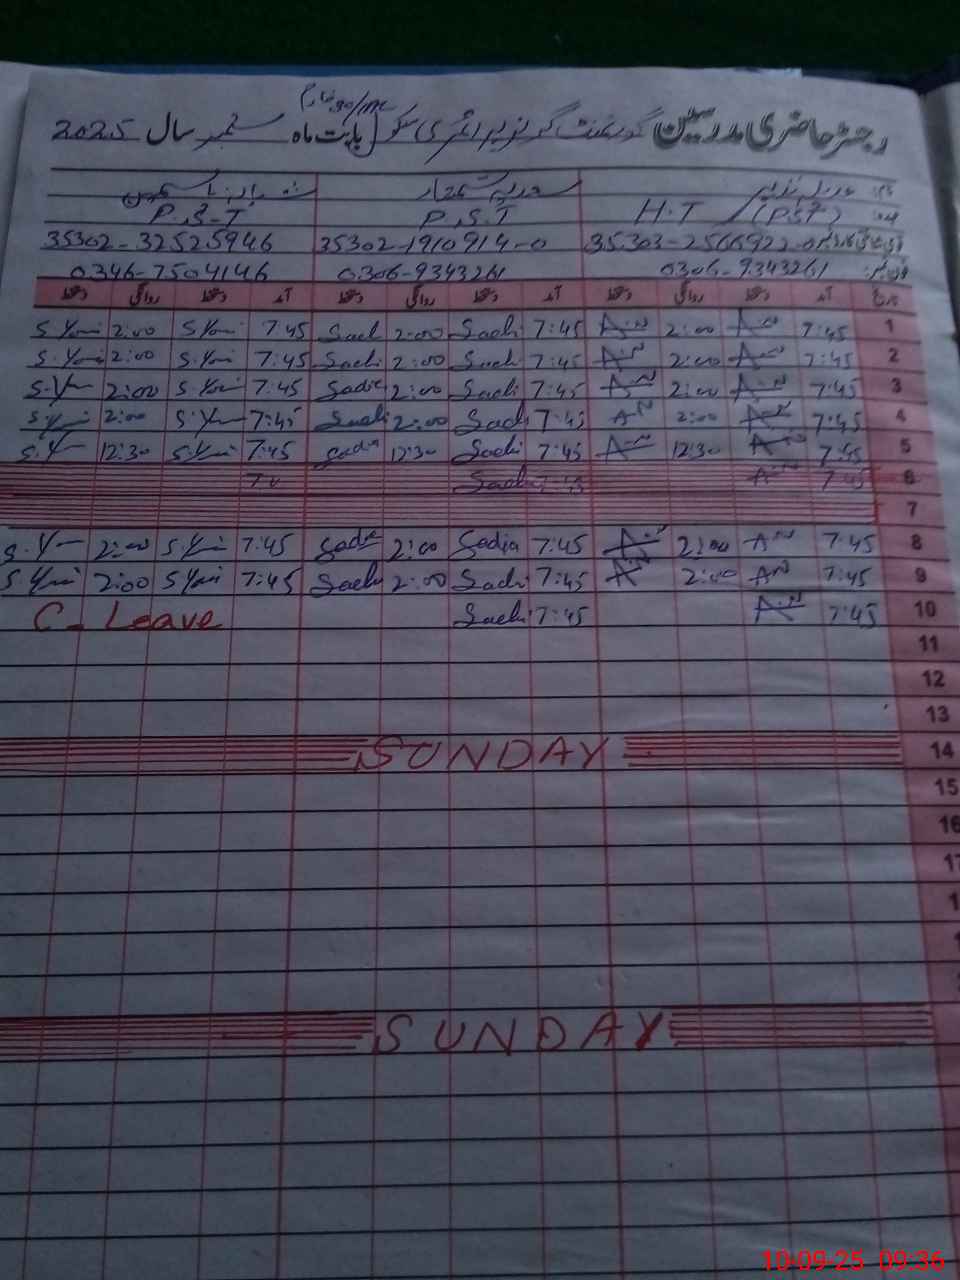 رجسٹر حاضری مدرسین گورنمنٹ گرلز پرائمری سکول بابت ماہ ستمبر سال 2025
H.T / (PST) P.S.T P.S.T
35303-2566922-0 35302-1910914-0 35302-32525946
فون نمبر: 0306-9343261 0306-9343261 0346-7504146
تاریخ آمد دستخط روانگی دستخط آمد دستخط روانگی دستخط آمد دستخط روانگی دستخط
1 7:45 A.N 2:00 A.N 7:45 Sadi 2:00 Sadi 7:45 S.Yami 2:00 S.Yami
2 7:45 A.N 2:00 A.N 7:45 Sadi 2:00 Sadi 7:45 S.Yami 2:00 S.Yami
3 7:45 A.N 2:00 A.N 7:45 Sadi 2:00 Sadie 7:45 S.Yami 2:00 S.Y
4 7:45 A.N 2:00 A.N 7:45 Sadi 2:00 Sadi 7:45 S.Y 2:00 S.Yami
5 7:45 A.N 12:30 A.N 7:45 Sadi 12:30 Sadia 7:45 S.Yami 12:30 S.Y
6 7:45 A.N 7:45 Sadi
7
8 7:45 A.N 2:00 A.N 7:45 Sadia 2:00 Sadie 7:45 S.Yami 2:00 S.Y
9 7:45 A.N 2:00 A.N 7:45 Sadi 2:00 Sadi 7:45 S.Yami 2:00 S.Yami
10 7:45 A.N 7:45 Sadi C- Leave
11
12
13
14 SUNDAY
15
16
SUNDAY
10-09-25 09:36